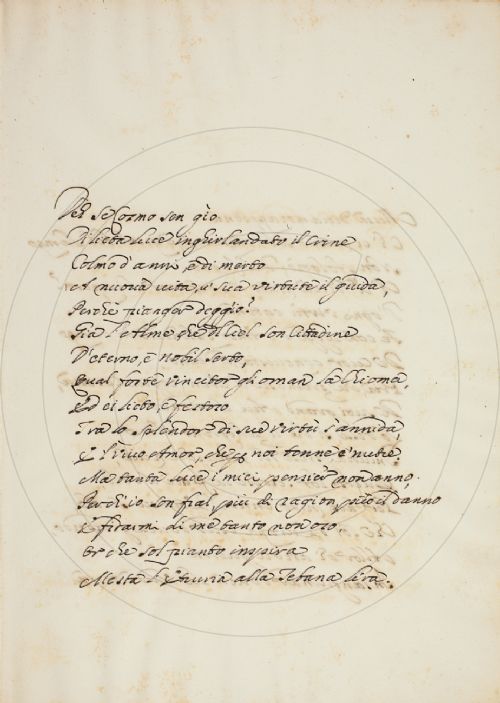 Deh se Cosmo sen gio
Di lieta luce inghirlandato il Crine
Colmo d'anni, e di merto
A nuova vita, e sua virtute il guida,
Perche pianger deggio?
Gia l'etime che di Ciel son Cittadine
D'eterno, e nobil serto,
Qual forte vincitor gli ornan la Chioma,
Ed ei lieto, e festoso
Tra lo splendor di sue virtù s'annida,
E l' vivo Amor che noi tonne e nutre
Ma tanta luce i miei pensier non anno,
Perch'io son fral più di ragion può il danno
E fidarmi di me tanto non oso,
Or che sol pianto inspira
Mesta l'Etruria alla Tebana lira.